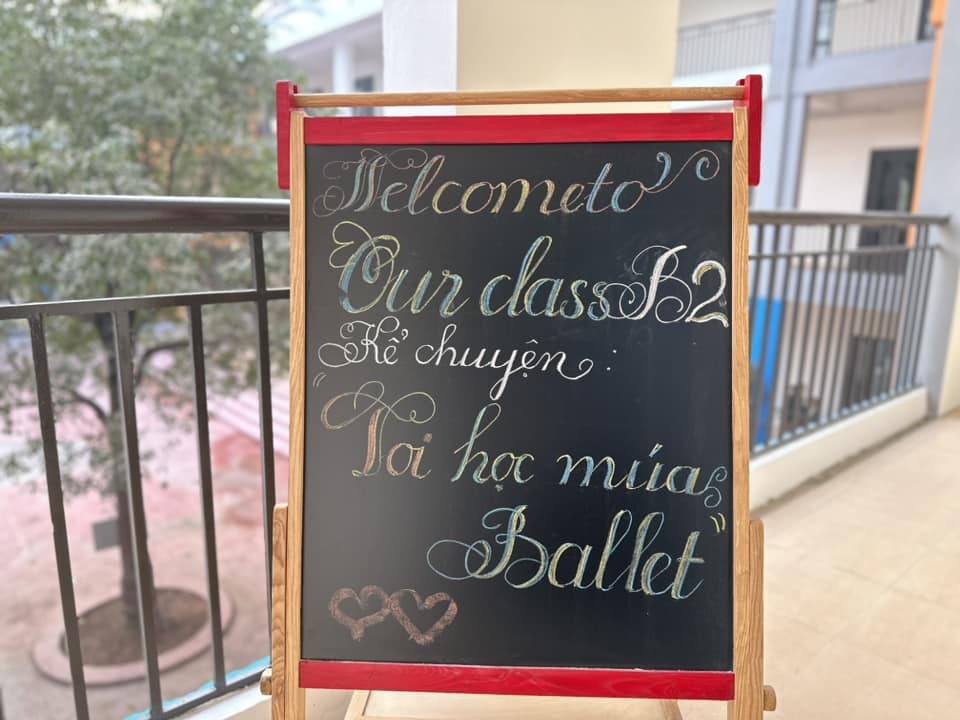 Welcome to
Our class B2
Kể chuyện :
"Toi học múa
Ballet"